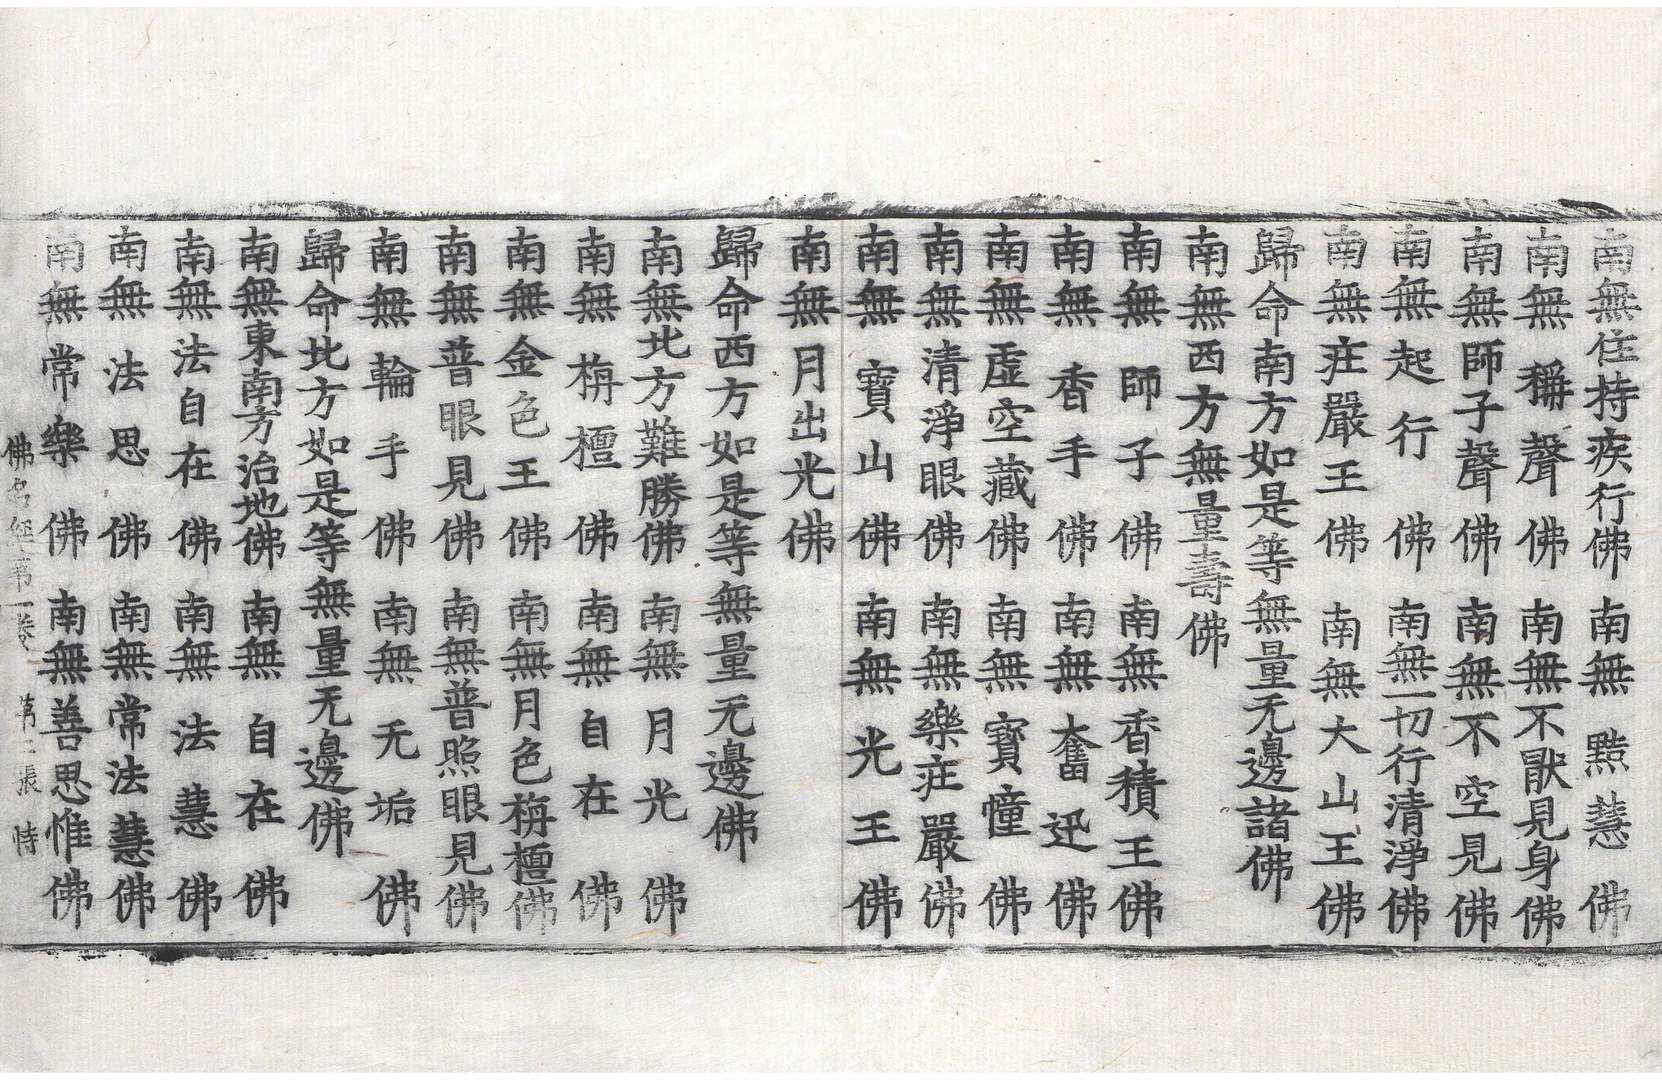 南無住持疾行佛　南無黠慧佛
南無稱聲佛　南無不猒見身佛
南無師子聲佛　南無不空見佛
南無起行佛　南無一切行清淨佛
南無莊嚴王佛　南無大山王佛
歸命南方如是等無量无邊諸佛
南無西方無量壽佛
南無師子佛　南無香積王佛
南無香手佛　南無奮迅佛
南無虛空藏佛　南無寶幢佛
南無清淨眼佛　南無樂莊嚴佛
南無寶山佛　南無光王佛
南無月出光佛
歸命西方如是等無量无邊佛
南無北方難勝佛　南無月光佛
南無栴檀佛　南無自在佛
南無金色王佛　南無月色栴檀佛
南無普眼見佛　南無普照眼見佛
南無輪手佛　南無无垢佛
歸命北方如是等無量无邊佛
南無東南方治地佛　南無自在佛
南無法自在佛　南無法慧佛
南無法思佛　南無常法慧佛
南無常樂佛　南無善思惟佛
佛名經第一卷　第二張　恃